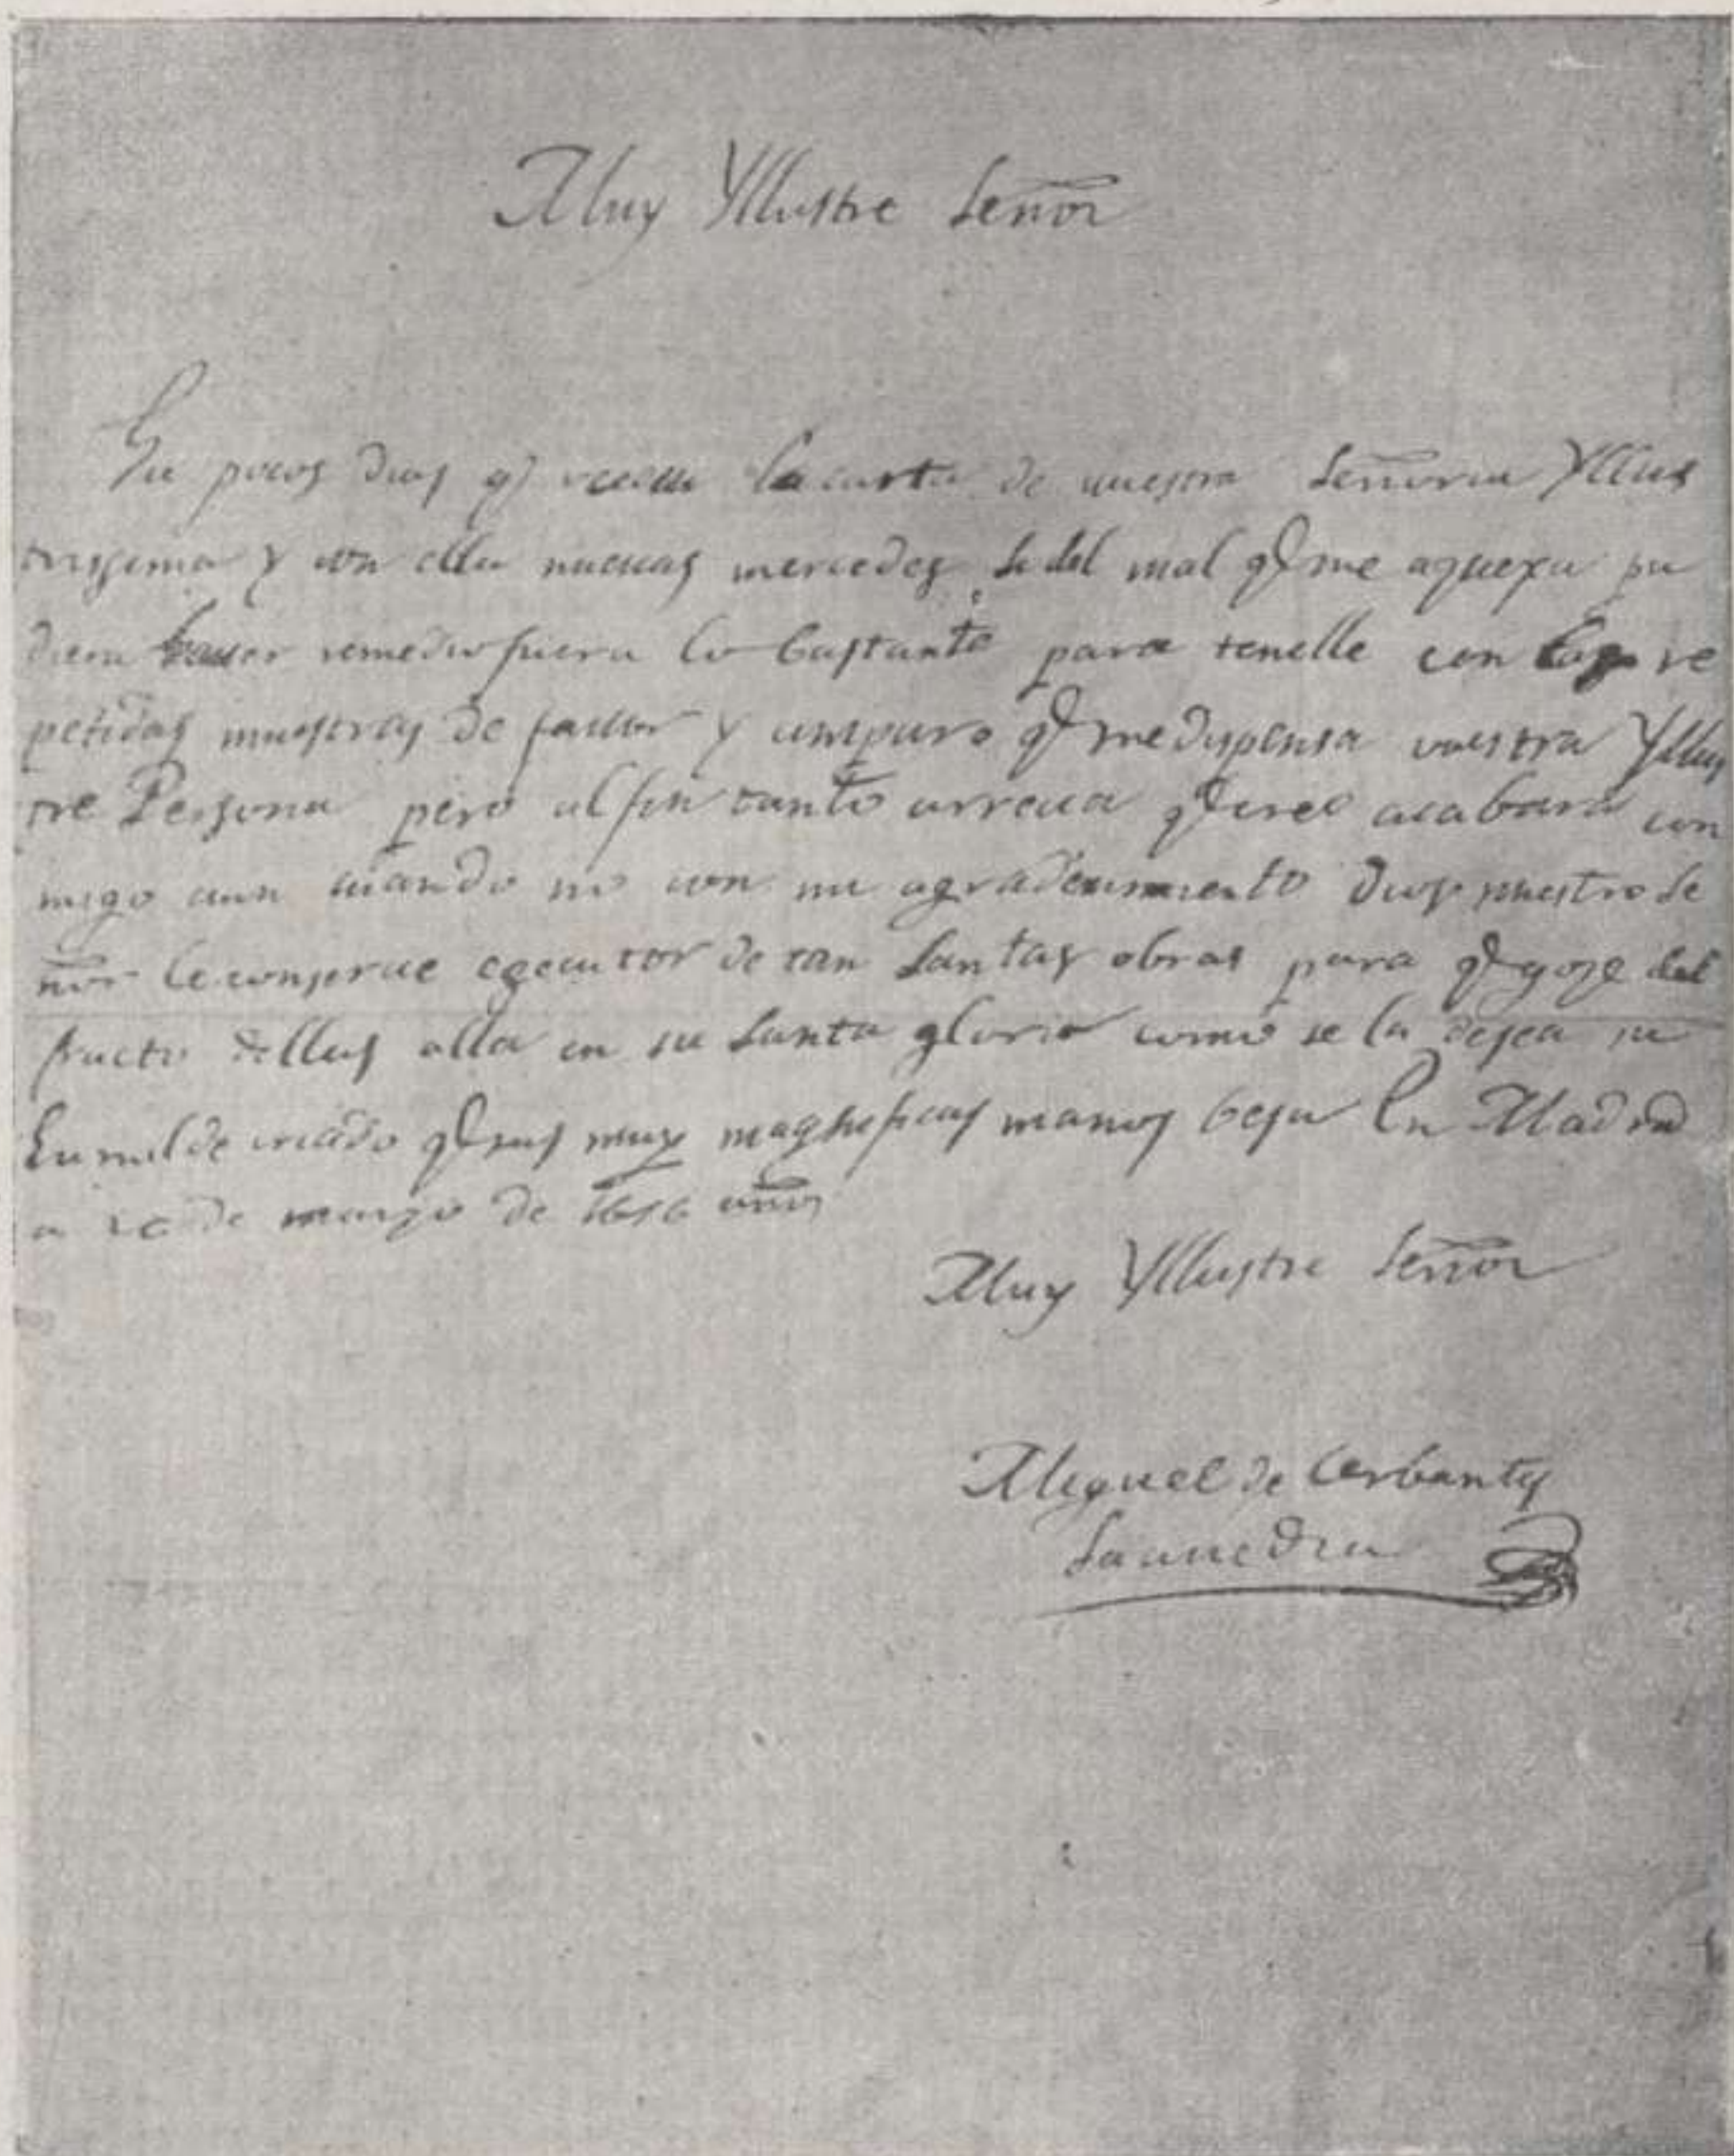 Muy Yllustre Señor
Ha pocos dias q receui la carta de vuestra Señoria Yllus
trissima y con ella nueuas mercedes si del mal q me aquexa pu
diera hauer remedio fuera lo bastante para tenelle con las re
petidas muestras de fauor y amparo q me dispensa vuestra Yllus
tre Persona pero al fin tanto arrecia q creo acabara con
migo aun cuando no con mi agradecimiento Dios nuestro Se
ñor le conserue egecutor de tan Santas obras para q goze del
fructo dellas alla en su Santa gloria como se la desea su
humilde criado q sus muy magnificas manos besa En Madrid
a 26 de marzo de 1616 años
Muy Yllustre Señor
Miguel de Cerbantes
Saauedra